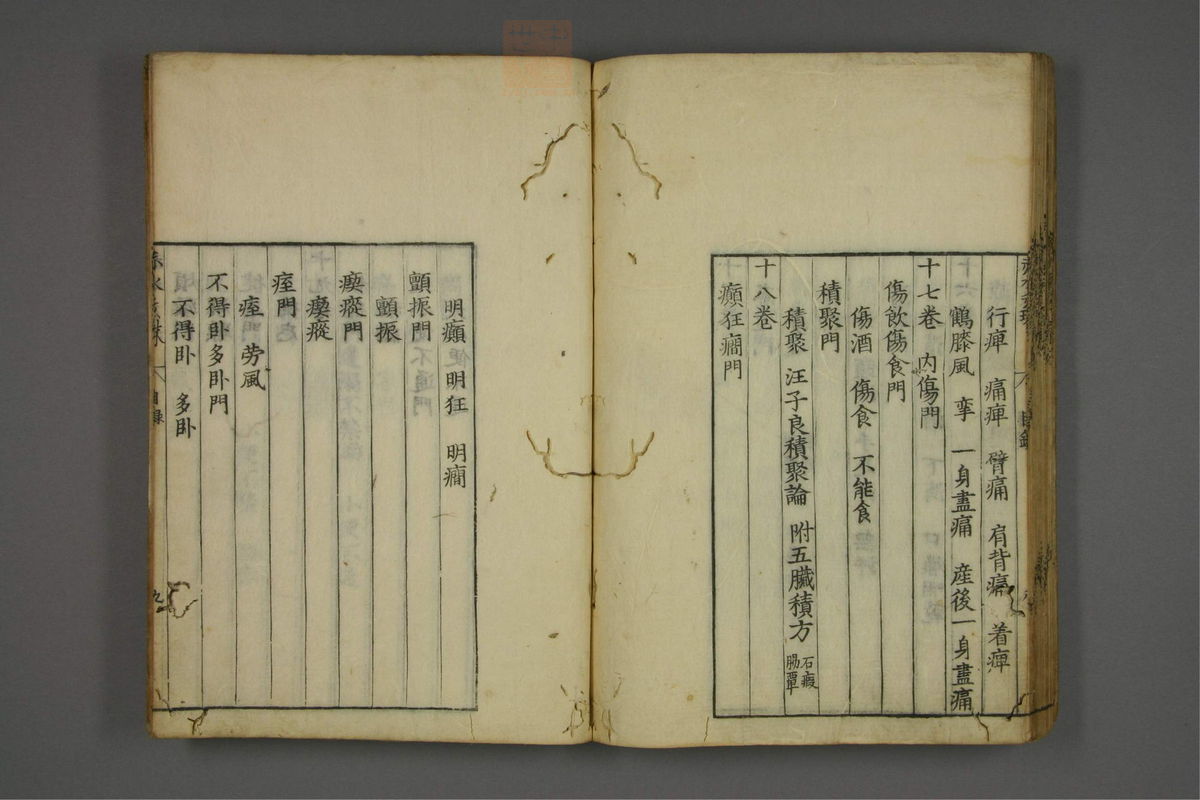 行痺 痛痺 臂痛 肩背痛 着痺
鶴膝風 攣 一身盡痛 産後一身盡痛
十七卷 內傷門
傷飲傷食門
傷酒 傷食 不能食
積聚門
積聚 汪子良積聚論 附五臟積方 石瘕 腸覃
十八卷
癲狂癇門
明癲 明狂 明癇
顫振門
顫振
瘈瘲門
瘈瘲
痓門
痓 勞風
不得卧多卧門
不得卧 多卧
目錄